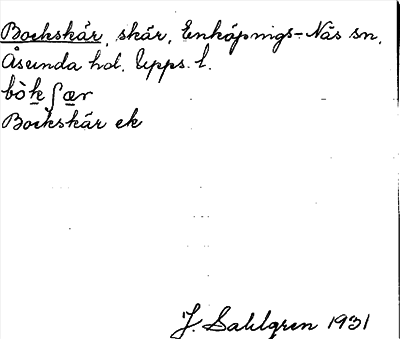 Bockskär, skär, Enköpings-Näs sn,
Åsunda hd. Upps. l.
bòkʃær
Bockskär ek
J. Sahlgren 1931